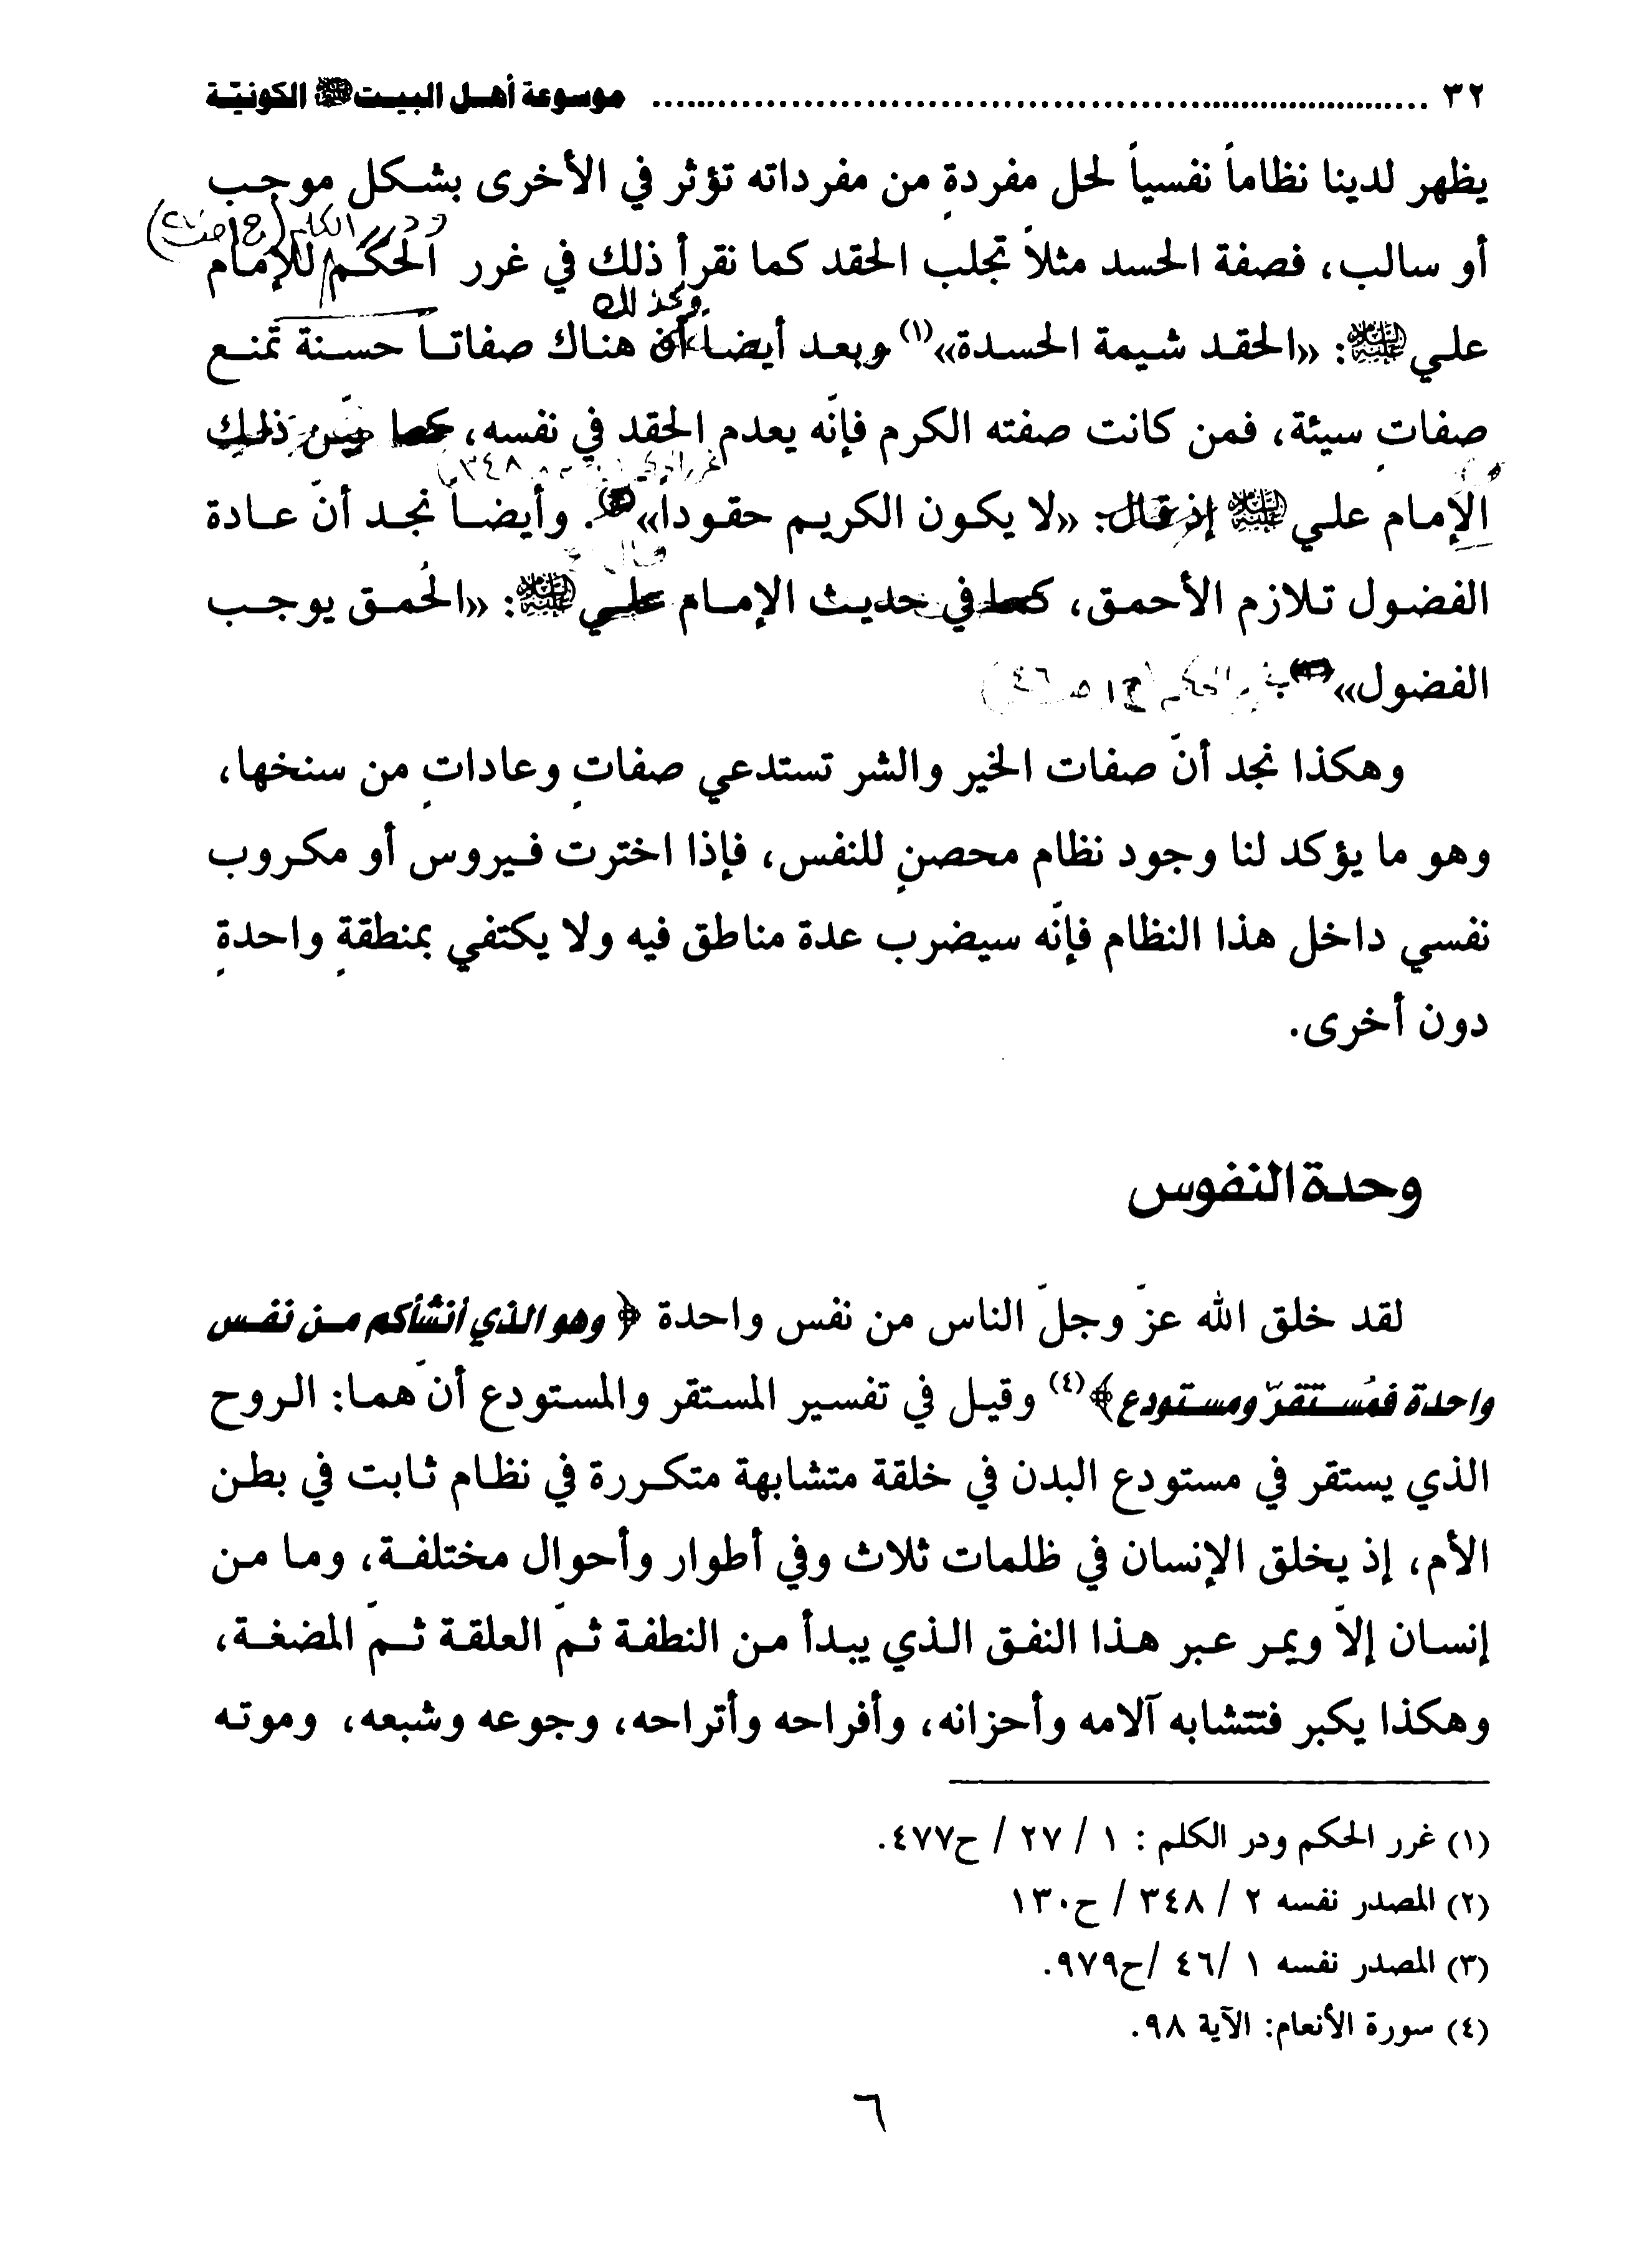 ٣٢ ................................................ موسوعة أهل البيت ﷺ الكونيّة
يظهر لدينا نظاماً نفسياً لحل مفردةٍ من مفرداته تؤثر في الأخرى بشكل موجب
ودرر الكلم (ج١ ص٢٧)
أو سالب، فصفة الحسد مثلاً تجلب الحقد كما نقرأ ذلك في غرر الحكم للإمام
وكذلك
علي عليه السلام: «الحقد شيمة الحسدة»(١) وبعد أيضاً أن هناك صفاتاً حسنة تمنع
صفاتٍ سيئة، فمن كانت صفته الكرم فإنّه يعدم الحقد في نفسه، كما بيّن ذلك
الإمام علي عليه السلام إذ قال: «لا يكون الكريم حقوداً». وأيضاً نجد أنّ عادة
الفضول تلازم الأحمق، كما في حديث الإمام علي عليه السلام: «الحُمق يوجب
الفضول»(٣) (ج١ ص٤٦)
وهكذا نجد أنّ صفات الخير والشر تستدعي صفاتٍ وعاداتٍ من سنخها،
وهو ما يؤكد لنا وجود نظام محصنٍ للنفس، فإذا اخترت فيروس أو مكروب
نفسي داخل هذا النظام فإنّه سيضرب عدة مناطق فيه ولا يكتفي بمنطقةٍ واحدةٍ
دون أخرى.
وحدة النفوس
لقد خلق الله عزّ وجلّ الناس من نفس واحدة ﴿وهو الذي أنشأكم من نفس
واحدة فمُستقرّ ومستودع﴾(٤) وقيل في تفسير المستقر والمستودع أنّ هما: الروح
الذي يستقر في مستودع البدن في خلقة متشابهة متكررة في نظام ثابت في بطن
الأم، إذ يخلق الإنسان في ظلمات ثلاث وفي أطوار وأحوال مختلفة، وما من
إنسان إلاّ ويمر عبر هذا النفق الذي يبدأ من النطفة ثمّ العلقة ثمّ المضغة،
وهكذا يكبر فتتشابه آلامه وأحزانه، وأفراحه وأتراحه، وجوعه وشبعه، وموته
(١) غرر الحكم ودر الكلم : ١ / ٢٧ / ح٤٧٧.
(٢) المصدر نفسه ٢ / ٣٤٨ / ح١٣٠
(٣) المصدر نفسه ١ /٤٦ /ح٩٧٩.
(٤) سورة الأنعام: الآية ٩٨.
٦